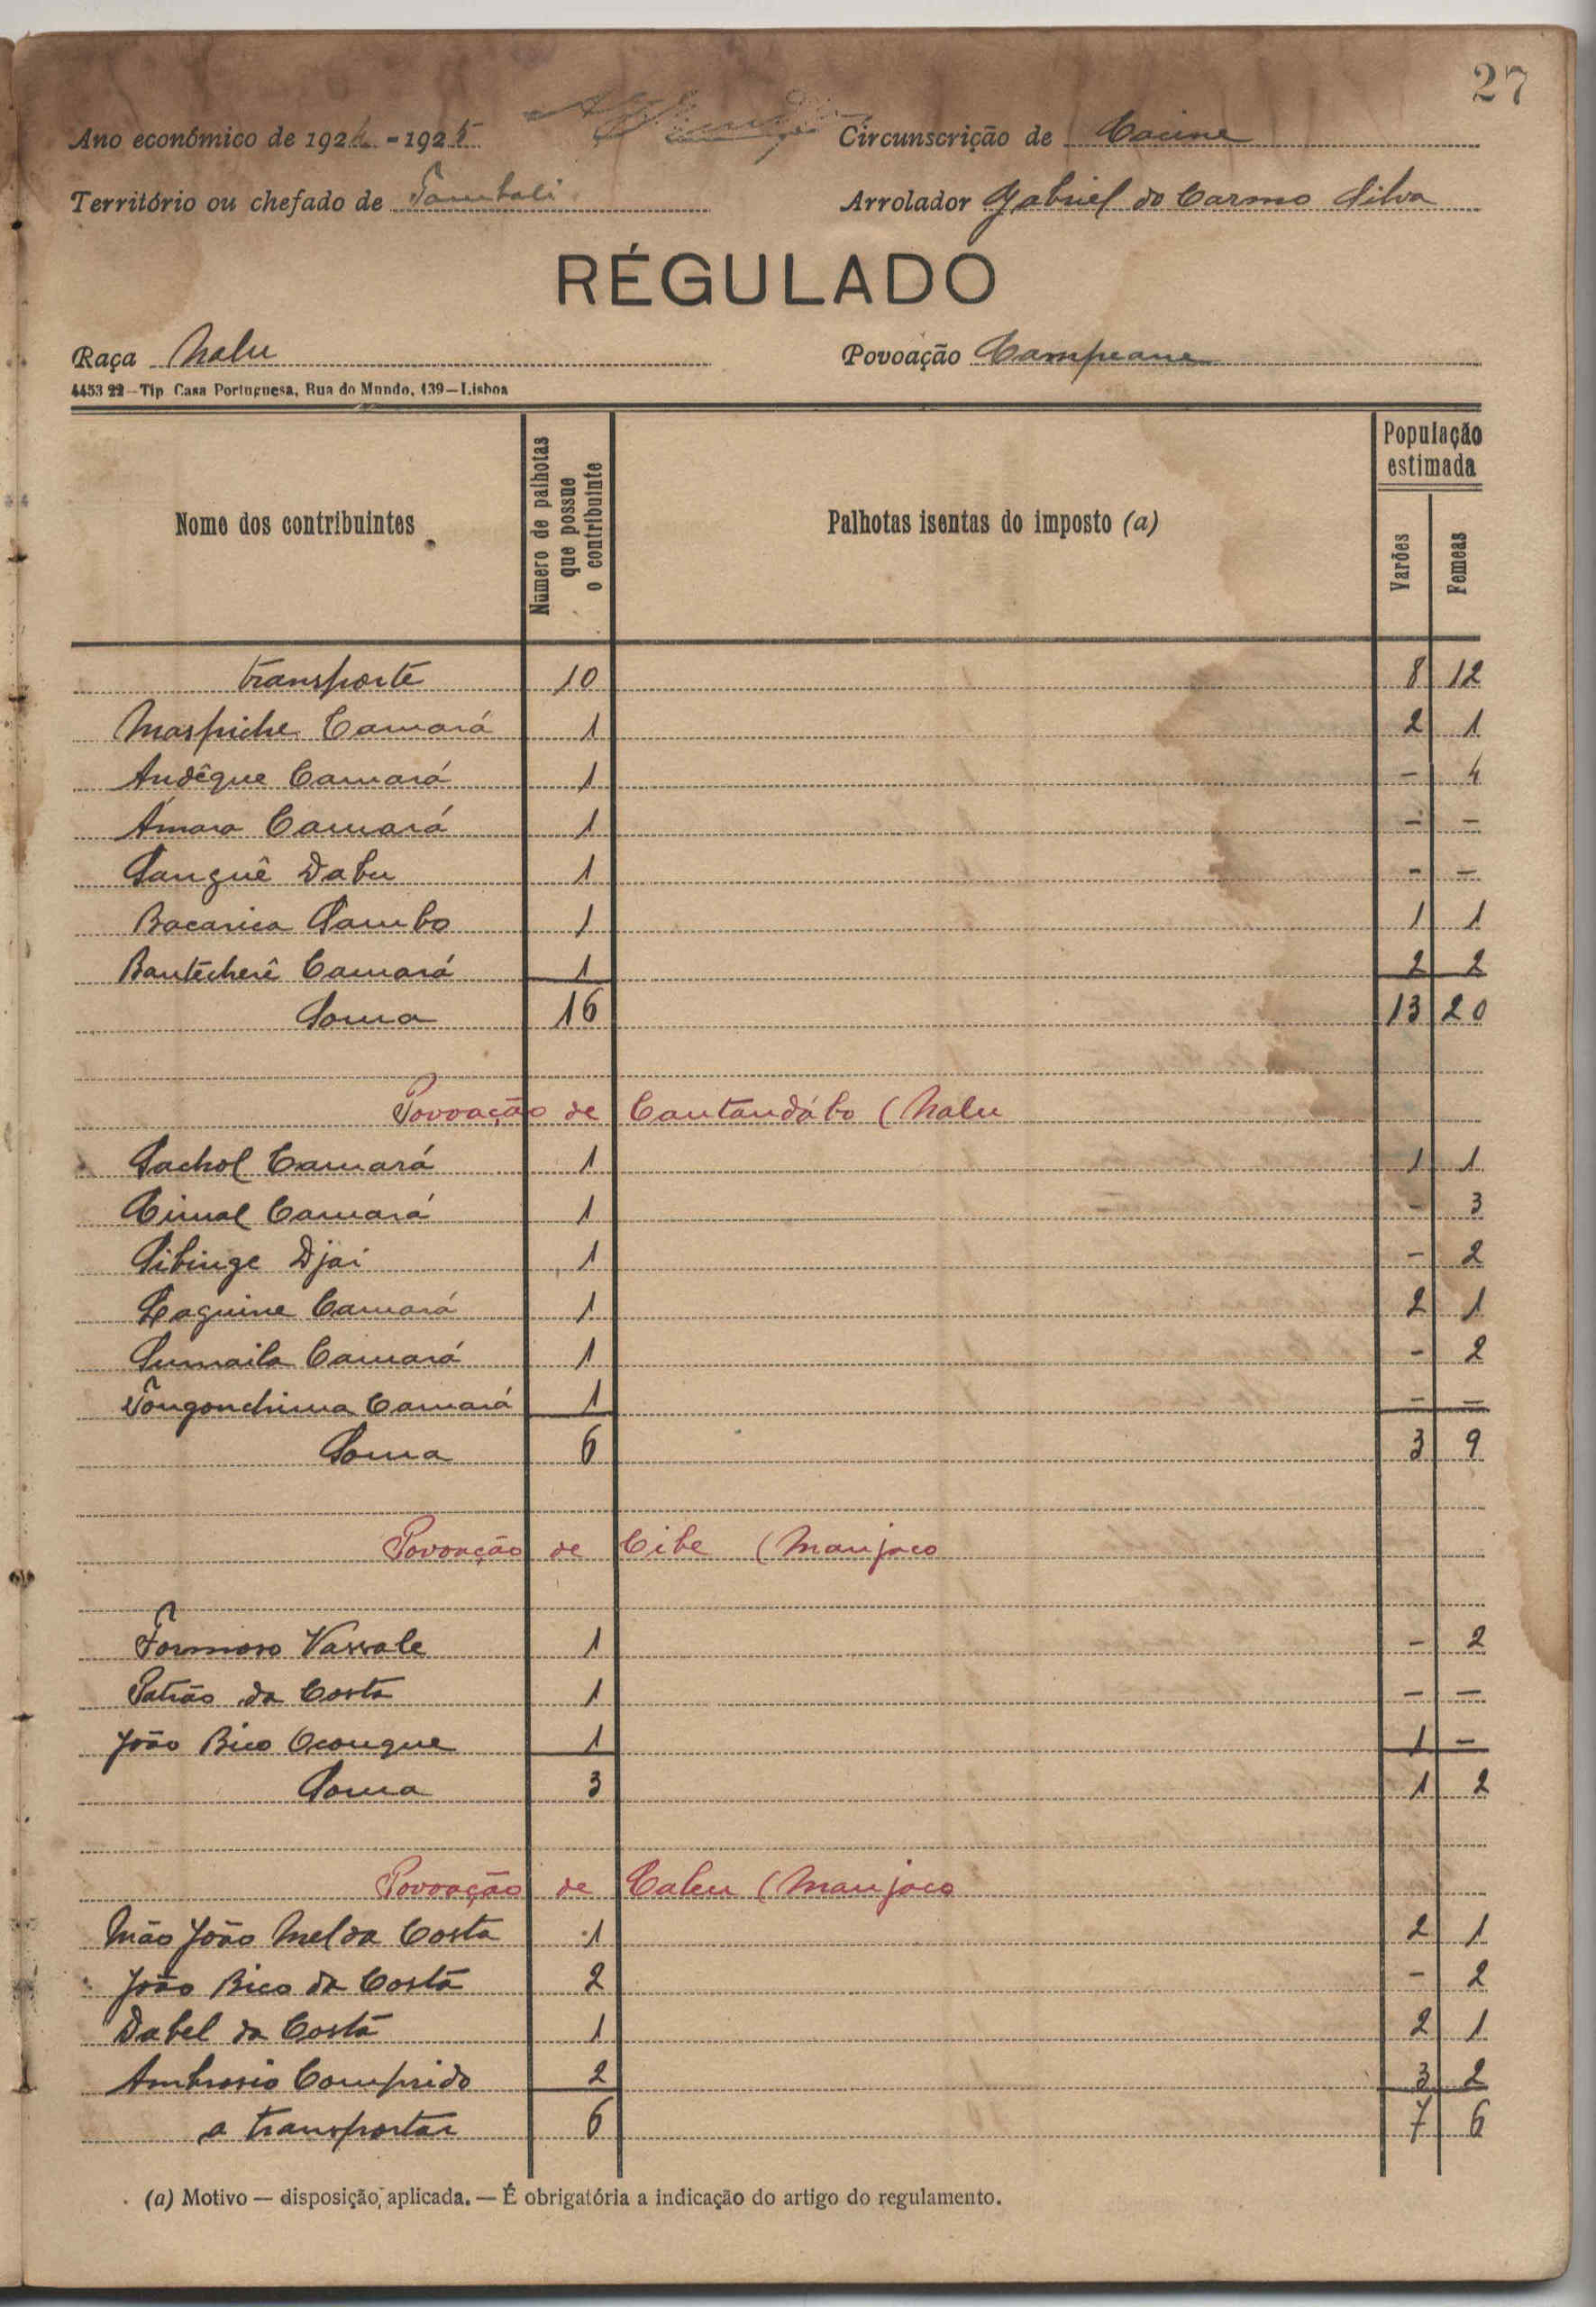 27
Ano económico de 1924-1925 Circunscrição de Cacine
Território ou chefado de Tombali Arrolador Gabriel do Carmo Silva
RÉGULADO
Raça Nalu Povoação Campeane
4453 22—Tip Casa Portuguesa, Rua do Mundo, 139—Lisboa
Nome dos contribuintes Número de palhotas que possue o contribuinte Palhotas isentas do imposto (a) População estimada Varões Femeas
transporte 10 8 12
Maspiche Camará 1 2 1
Andêque Camará 1 - 4
Ámara Camará 1 - -
Sanguê Dabu 1 - -
Bacarica Sambo 1 1 1
Bantécherê Camará 1 2 2
Soma 16 13 20
Povoação de Cantandábo (Nalu
Sachol Camará 1 1 1
Cimal Camará 1 - 3
Sibinge Djai 1 - 2
Laguine Camará 1 2 1
Sumaila Camará 1 - 2
Tongonchima Camará 1 - -
Soma 6 3 9
Povoação de Cibe (Manjaco
Formoso Vassale 1 - 2
Patrão da Costa 1 - -
João Bico Ocongue 1 1 -
Soma 3 1 2
Povoação de Caleu (Manjaco
Mão João Mel da Costa 1 2 1
João Bico da Costa 2 - 2
Dabel da Costa 1 2 1
Ambrosio Comprido 2 3 2
a transportar 6 7 6
(a) Motivo — disposição, aplicada. — É obrigatória a indicação do artigo do regulamento.